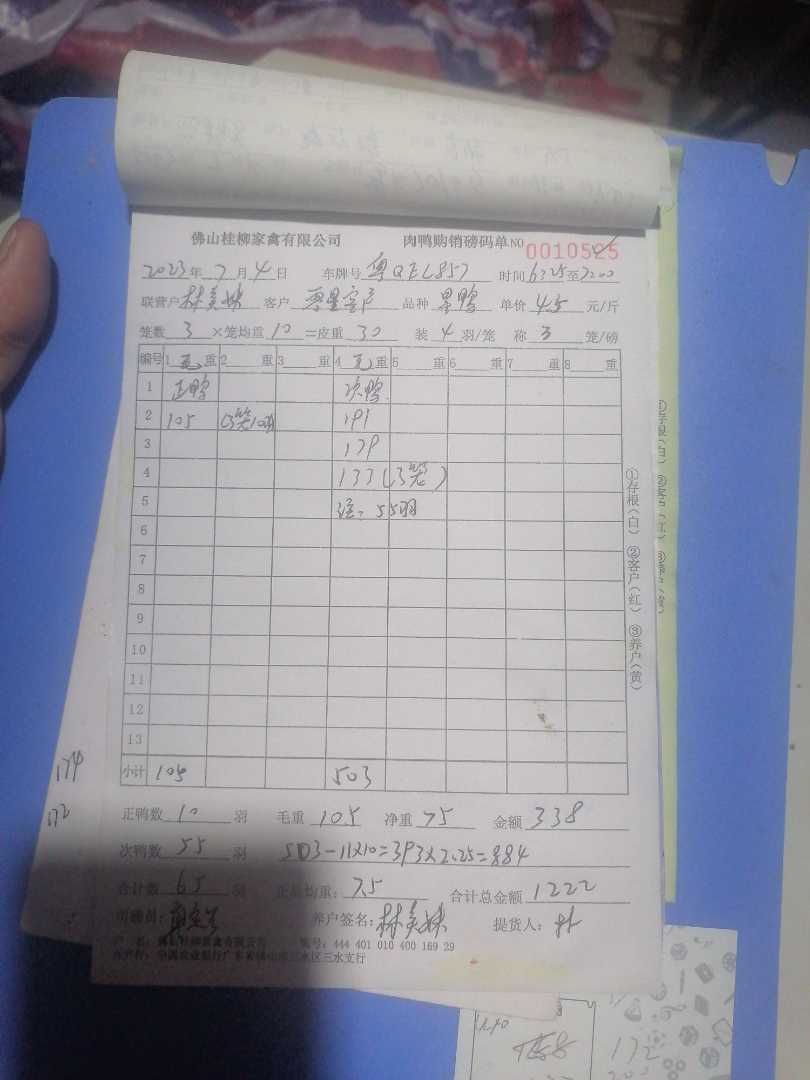 佛山桂柳家禽有限公司 肉鸭购销磅码单 NO 0010525
2023年7月4日 车牌号 粤QEL857 时间 6325至7200
联营户 林美妹 客户 品种 单价 4.5 元/斤
笼数 3 ×笼均重 10 =皮重 30 装 4 羽/笼 称 3 笼/磅
编号 1 毛 重 2 重 3 重 4 毛 重 5 重 6 重 7 重 8 重
1 正鸭 次鸭
2 105 (3笼10羽) 191
3 179
4 133(3笼)
5 注:55羽
6
7
8
9
10
11
12
13
小计 105 503
正鸭数 10 羽 毛重 105 净重 75 金额 338
次鸭数 55 羽 503-11×10=393×2.25=884
合计数 65 羽 正品均重: 7.5 合计总金额 1222
司磅员: 养户签名: 林美妹 提货人:
户 名: 佛山桂柳家禽有限公司 账号: 444 401 010 400 169 29
开户行: 中国农业银行广东省佛山市三水区三水支行
①存根(白) ②客户(红) ③养户(黄)
174
172
172